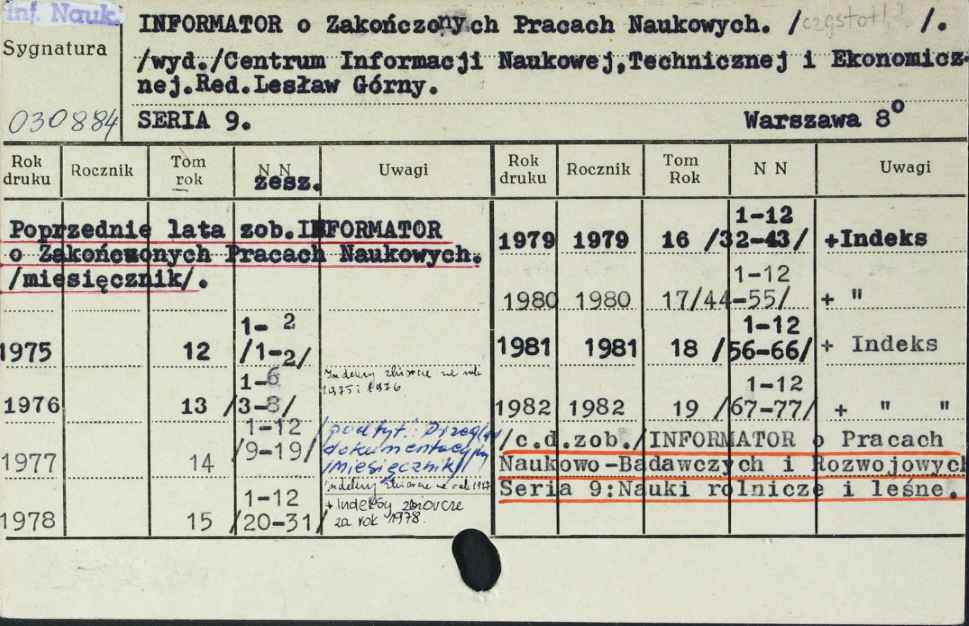 Inf. Nauk.
INFORMATOR o Zakończonych Pracach Naukowych. / /.
Sygnatura
/wyd./Centrum Informacji Naukowej,Technicznej i Ekonomicz-
nej.Red.Lesław Górny.
030884
SERIA 9. Warszawa 8°
Rok druku Rocznik Tom rok N N zesz. Uwagi
Poprzednie lata zob.INFORMATOR
o Zakończonych Pracach Naukowych.
/miesięcznik/.
1975 12 1-2 /1-2/
1976 13 1-6 /3-8/ Indeksy zbiorcze za rok 1975 i 1976
1977 14 1-12 /9-19/ /podtyt.: Przegląd dokumentacyjny /miesięcznik/ Indeksy zbiorcze za rok 1977
1978 15 1-12 /20-31/ + Indeksy zbiorcze za rok 1978.
Rok druku Rocznik Tom Rok N N Uwagi
1979 1979 16 1-12 /32-43/ +Indeks
1980 1980 17 1-12 /44-55/ + "
1981 1981 18 1-12 /56-66/ + Indeks
1982 1982 19 1-12 /67-77/ + " "
/c.d.zob./INFORMATOR o Pracach
Naukowo-Badawczych i Rozwojowych
Seria 9:Nauki rolnicze i leśne.